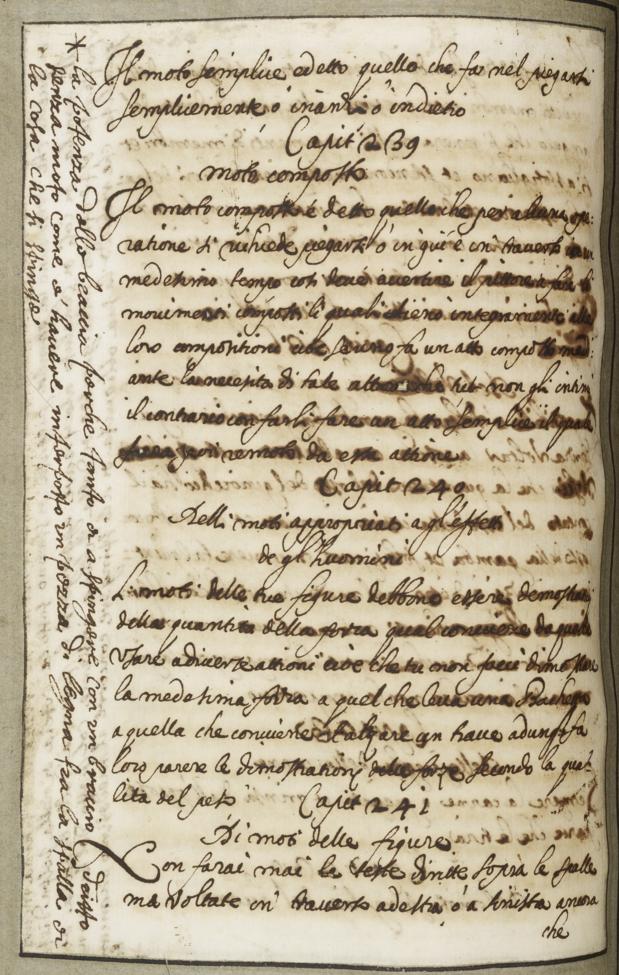 Il moto semplice e detto quello che fa nel piegarsi
semplicemente ó inanzi ó indietro
Capit 239
moto composto
Il moto composto é detto quello che per alcuna ope:
ratione si richiede piegarsi ó in giù é in traverso in un
medesimo tempo
movimenti composti li quali integramente alle
loro compositioni cioè se uno fa un atto composto medi:
ante la necesita di tale che tu non gli
il contrario con farli fare un atto semplice il quale
remoto da essa attione
Capit 240
Delli moti appropriati a gl'effetti
de gl'huomini
Li moti delle tue figure debbono essere demostrati
della quantita della forza qual conviene da quelle
Usare a diverse attioni cioè che tu non facci dimostrare
la medesima forza a quel che leva una Bachetta
a quella che conviene Alzare un trave adunq fa
loro parere le dimostrationi delle forze secondo la qua:
lita del peso Capit 241
Di moti delle figure
Non farai mai le teste diritte sopra le spalle
ma Voltate in traverso a destra ó a sinistra ancora
che
* la potenza dello braccia perche tanto è a spingere con un braccio
senza moto come a havere un pezzo di legno fra la spalla et
la cosa che si spinge